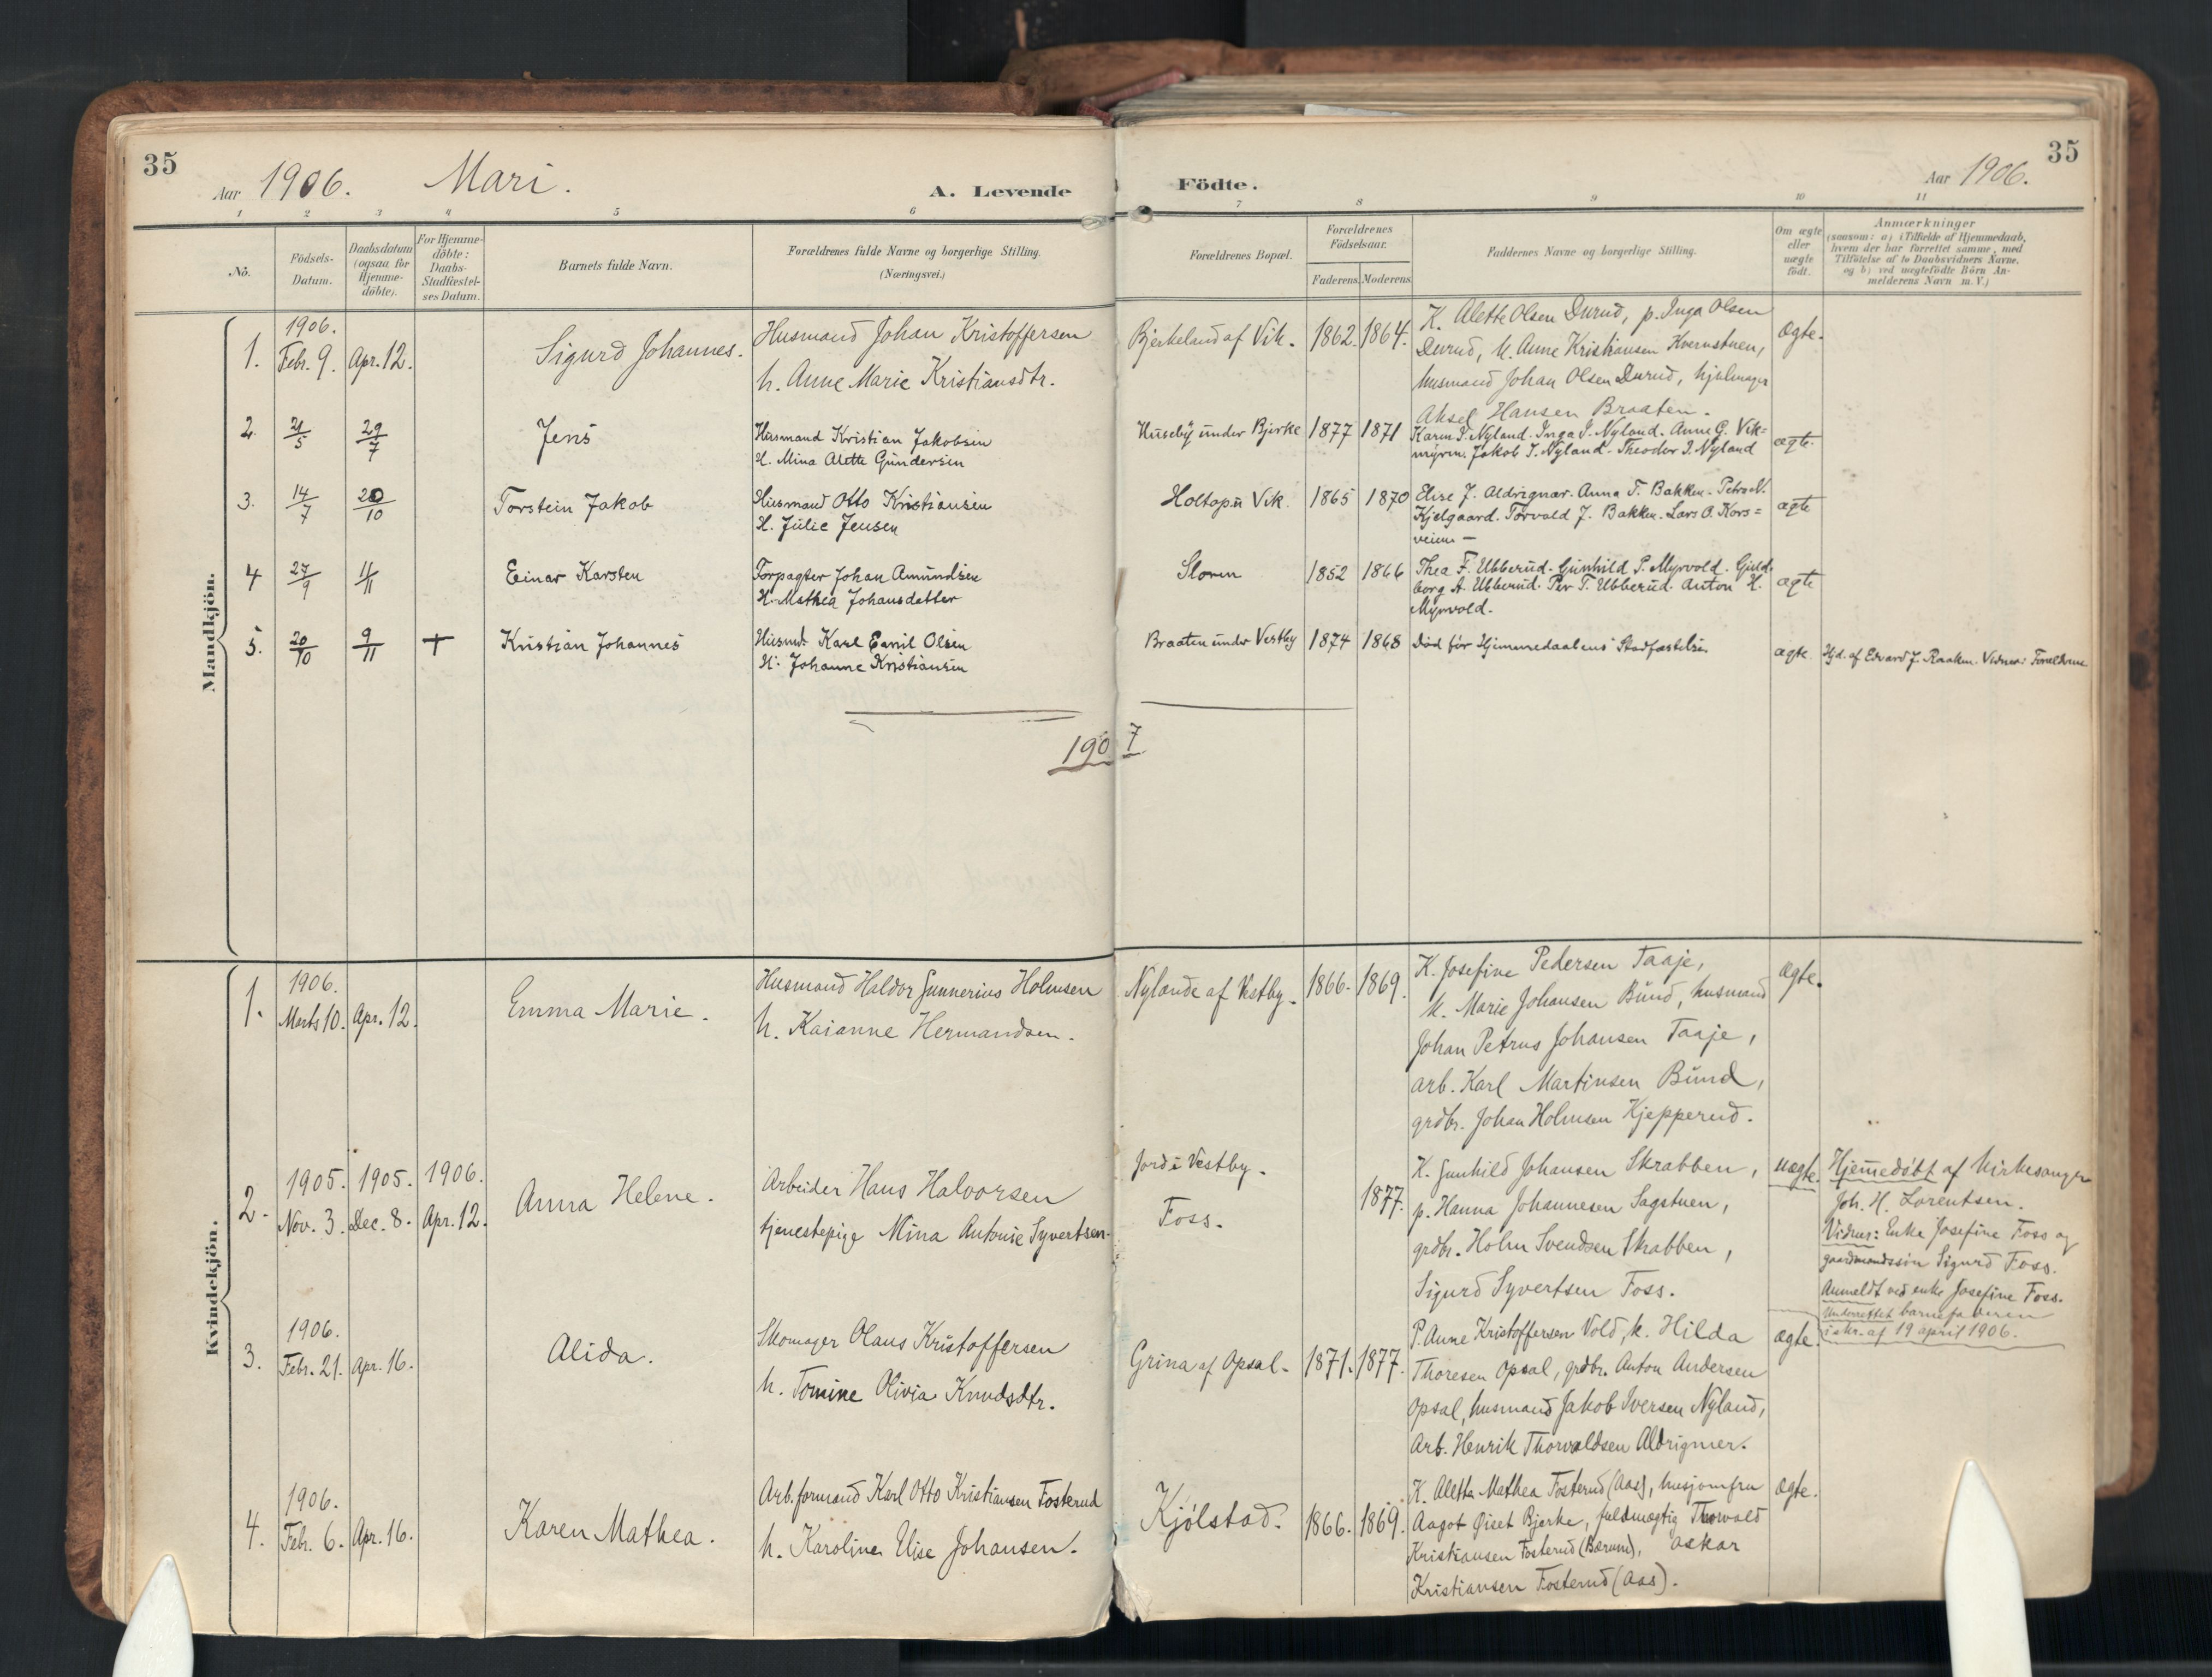 35
Aar 1906. Mari.
A. Levende
Födte.
Aar 1906.
35
1 2 3 4 5 6 7 8 9 10 11
No.
Födsels-
Datum.
Daabsdatum
(ogsaa for
Hjemme-
döbte).
For Hjemme-
döbte:
Daabs-
Stadfæstel-
ses Datum.
Barnets fulde Navn.
Forældrenes fulde Navne og borgerlige Stilling.
(Næringsvei.)
Forældrenes Bopæl.
Forældrenes
Födselsaar.
Faderens. Moderens.
Faddernes Navne og borgerlige Stilling.
Om ægte
eller
uægte
födt.
Anmærkninger
(saasom: a) i Tilfælde af Hjemmedaab,
hvem der har forrettet samme, med
Tilföielse af to Daabsvidners Navne,
og b) ved uægtefödte Börn An-
melderens Navn m. V.)
Mandkjön.
1906.
1. Febr. 9. Apr. 12. Sigurd Johannes.
Husmand Johan Kristoffersen
h. Anne Marie Kristiansdtr.
Bjerkeland af Vik. 1862. 1864.
K. Alette Olsen Durud, p. Inga Olsen
Durud, k. Anne Kristiansen Kvernstuen,
husmand Johan Olsen Durud, hjulmager
Aksel Hansen Braaten.
Ægte.
2. 21/5 29/7 Jens
Husmand Kristian Jakobsen
H. Mina Alette Gundersen
Huseby under Bjerke 1877 1871
Karen I. Nyland. Inga I. Nyland. Anne G. Vik=
myren. Jakob I. Nyland. Theodor I. Nyland
ægte.
3. 14/7 20/10 Torstein Jakob
Husmand Otto Kristiansen
H. Julie Jensen
Holtop u Vik. 1865 1870
Elise J. Aldrigmær. Anna T. Bakken. Petra N.
Kjelgaard. Torvald J. Bakken. Lars O. Kors=
veien —
ægte
4 27/9 11/11 Einar Karsten
Forpagter Johan Amundsen
H. Mathea Johansdatter
Sloren 1852 1866
Thea F. Ubberud. Gunhild P. Myrvold. Guld-
borg A. Ubberud. Per T. Ubberud. Anton H.
Myrvold.
ægte
5. 20/10 9/11 + Kristian Johannes
Husmd. Karl Emil Olsen
H. Johanne Kristiansen
Braaten under Vestby 1874 1868
Död för Hjemmedaabens Stadfæstelse
ægte
Hjd. af Edvard J. Raaken. Vidner: Forældrene
1907
Kvindekjön.
1906.
1. Marts 10. Apr. 12. Emma Marie.
Husmand Haldor Gunnerius Holmsen
h. Kaianne Hermandsen.
Nylænde af Vestby. 1866. 1869.
K. Josefine Pedersen Taaje,
k. Marie Johansen Bund, husmand
Johan Petrus Johansen Taaje,
arb. Karl Martinsen Bund,
grdbr. Johan Holmsen Kjepperud.
Ægte.
1905. 1905. 1906.
2. Nov. 3. Dec. 8. Apr. 12. Anna Helene.
Arbeider Hans Halvorsen
tjenestepige Mina Antonie Syvertsen.
Jord i Vestby.
Foss.
1877.
K. Gunhild Johansen Skrabben,
p. Hanna Johannesen Sagstuen,
grdbr. Holm Svendsen Skrabben,
Sigurd Syvertsen Foss.
uægte.
Hjemedöbt af Kirkesanger
Joh. H. Lorentsen.
Vidner: Enke Josefine Foss og
gaardmandssön Sigurd Foss.
Anmeldt ved enke Josefine Foss.
Underrettet barnefaderen
i skr. af 19 april 1906.
1906.
3. Febr. 21. Apr. 16. Alida.
Skomager Olaus Kristoffersen
h. Tomine Olivia Knudsdtr.
Grina af Opsal. 1871. 1877.
P. Anne Kristoffersen Vold, k. Hilda
Thoresen Opsal, grdbr. Anton Andersen
Opsal, husmand Jakob Iversen Nyland,
Arb. Henrik Thorvaldsen Aldrigmer.
Ægte.
1906.
4. Febr. 6. Apr. 16. Karen Mathea.
Arb.formand Karl Otto Kristiansen Fosterud
h. Karoline Elise Johansen.
Kjölstad. 1866. 1869.
K. Alette Mathea Fosterud (Aas), husjomfru
Aagot Øiset Bjerke, fuldmægtig Thorvald
Kristiansen Fosterud (Bærum), Oskar
Kristiansen Fosterud (Aas).
Ægte.